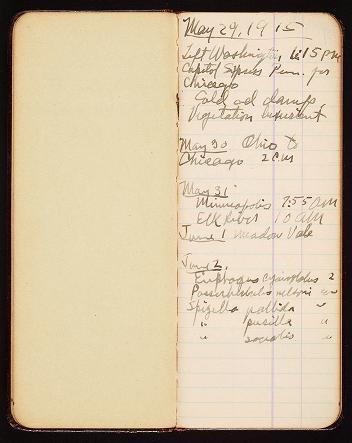 May 29, 1915
Left Washington 6:15 PM
Capitol Express Penn. for
Chicago
Cold and damp,
Vegetation luxuriant
May 30 Ohio to
Chicago 2 PM
May 31
Minneapolis 7:55 AM
Elk River 10 AM
June 1 Meadow Vale
June 2,
Euphagus cyanocephalus 2
Passerherbulus nelsoni
Spizella pallida "
" pusilla "
" socialis "